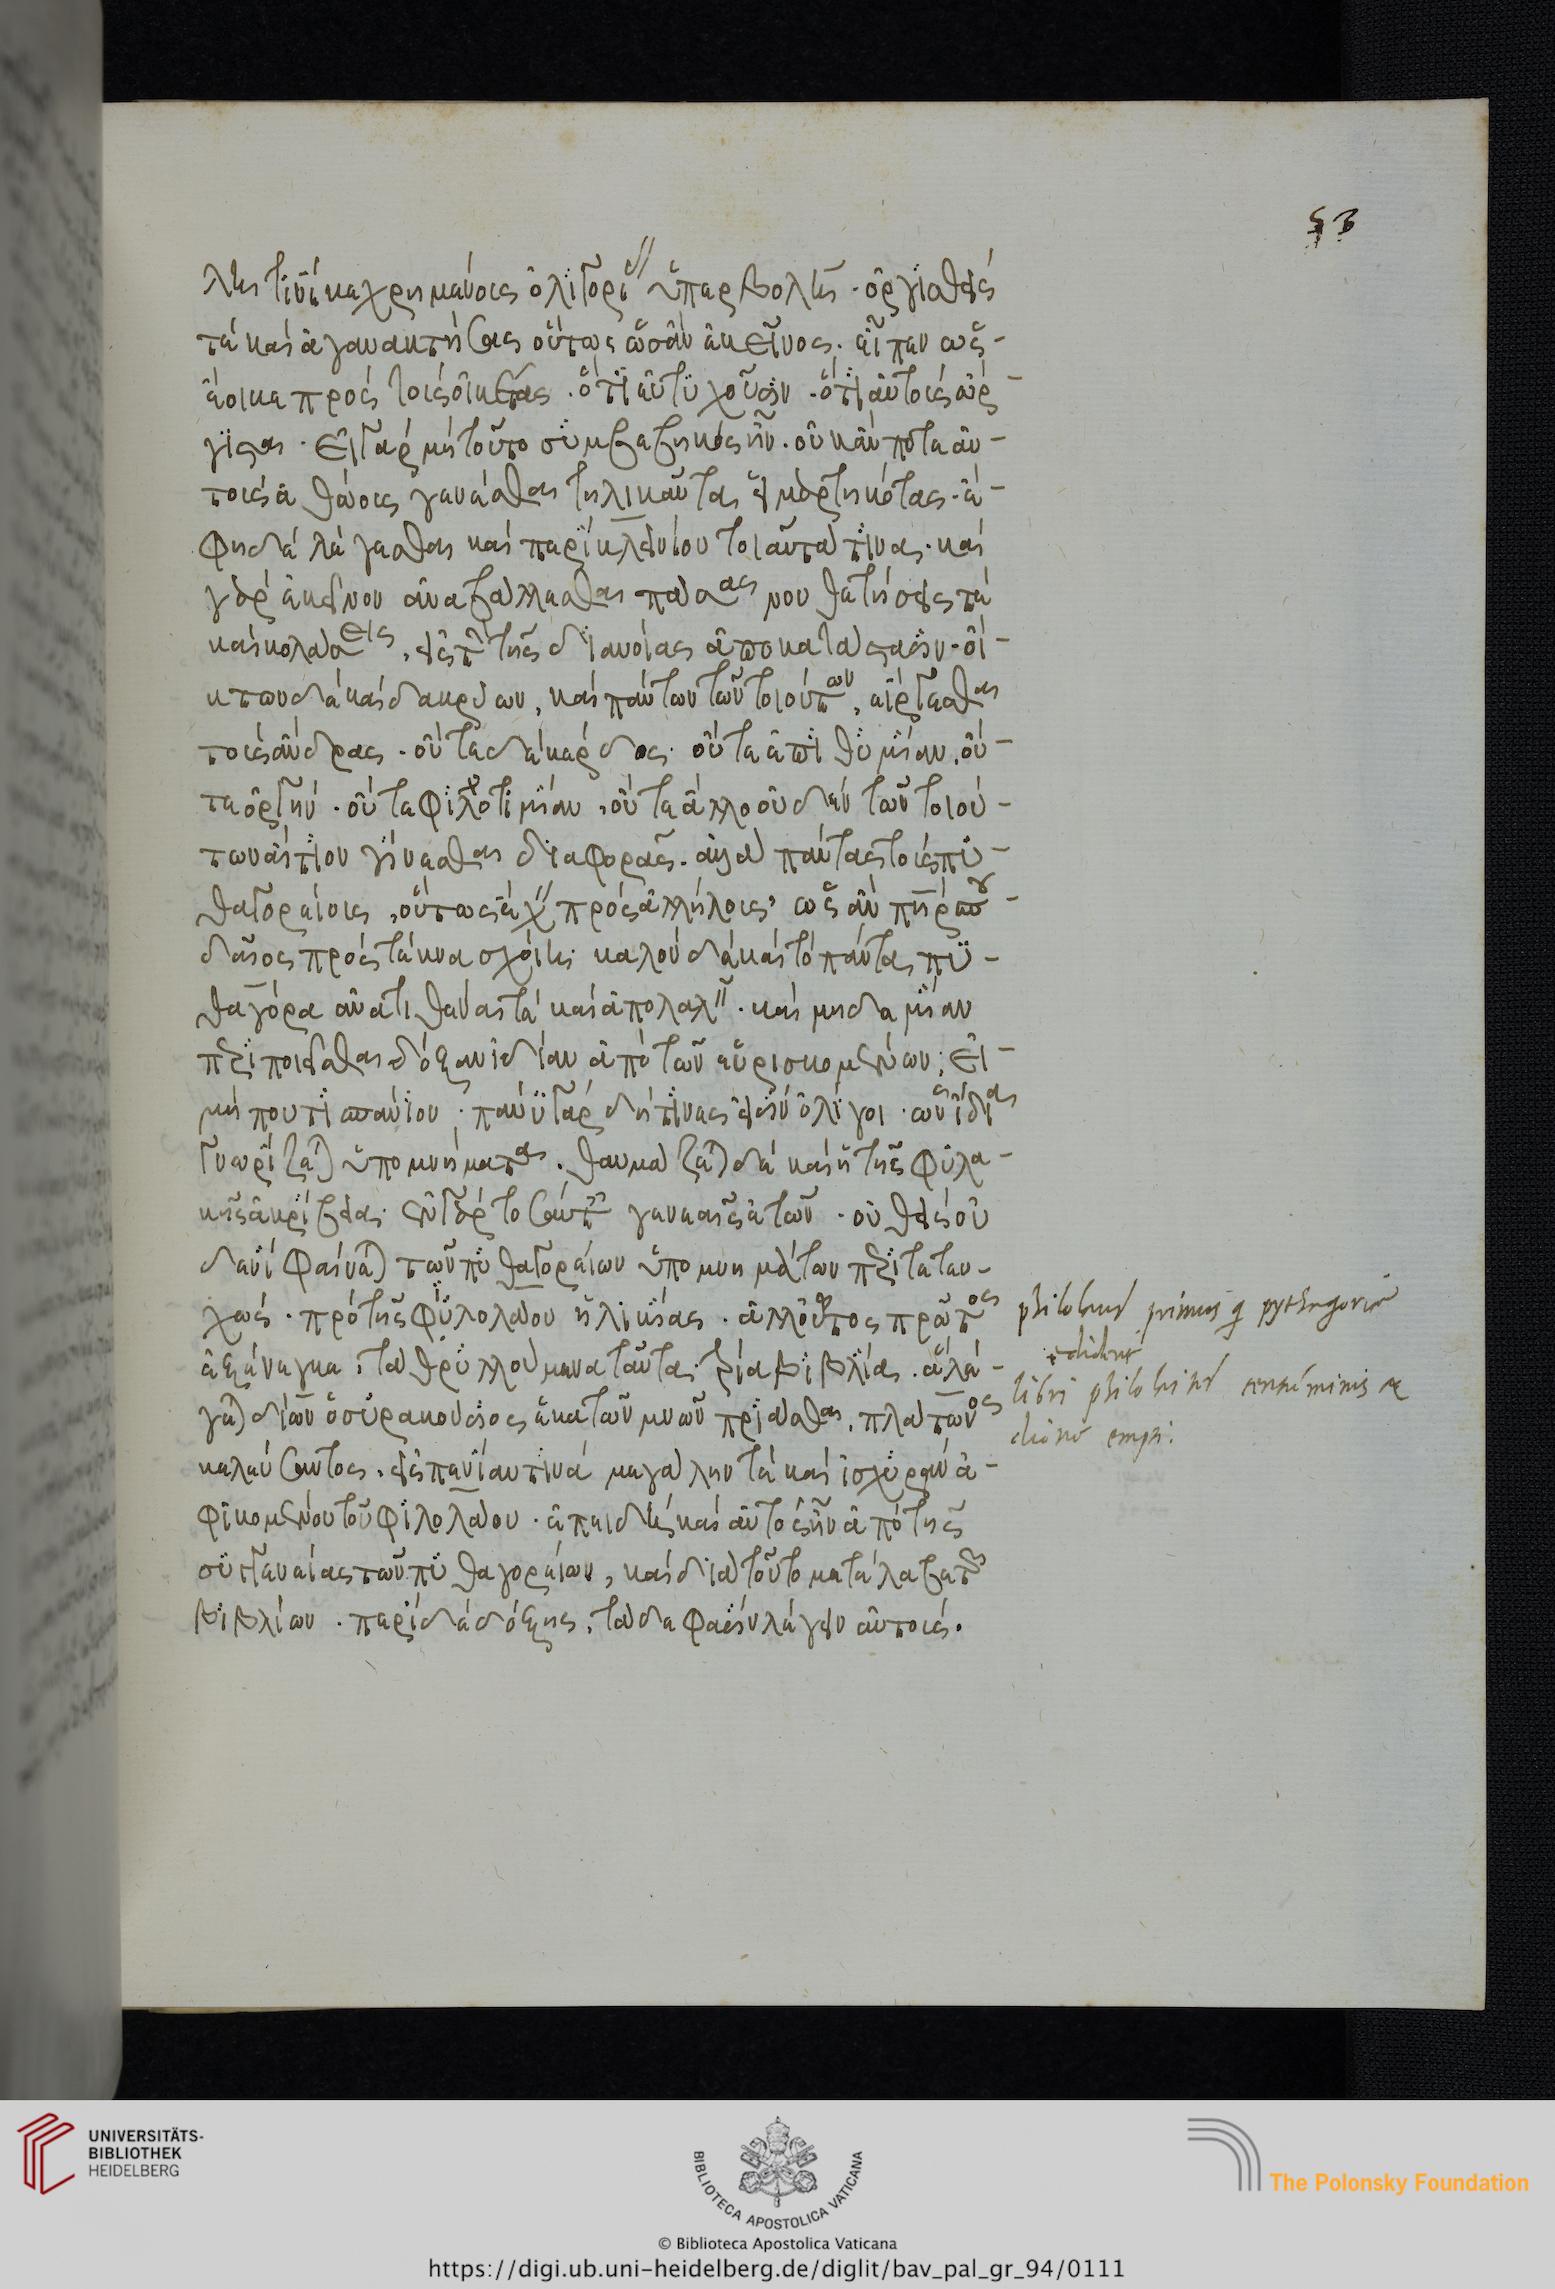 53
λῆι τινὶ κεχρημένους ὀλιγορί// ὑπερβολῆι. ὀργισθείς
τέ καὶ ἀγανακτήσας οὕτως ὡσὰν ἐκεῖνος. εἶπεν ὡς-
ἔοικε πρὸς τοὺς οἰκέτας. ὅτι εὐτυχοῦσιν. ὅτι αὐτοῖς ὠρ-
γισται. εἰ γὰρ μὴ τοῦτο συμβεβηκὸς ἦν. οὐκ ἄν ποτε αὐ-
τοὺς ἀθώους γενέσθαι τηλικαῦτα ἡμαρτηκότας. ἔ-
φη δὲ λέγεσθαι καὶ περὶ κλεινίου τοιαῦτα τινα. καὶ
γὰρ ἐκείνου ἀναβάλλεσθαι πάσας νουθετήσεις τέ
καὶ κολάσεις, εἰς τ(ὴν) τῆς διανοίας ἀποκατάστασιν. οἴ-
κτων δὲ καὶ δακρύων, καὶ πάντων τῶν τοιούτων, εἴργεσθαι
τοὺς ἄνδρας. οὔτε δὲ κέρδος. οὔτε ἐπιθυμίαν. οὔ-
τε ὀργήν. οὔτε φιλοτιμίαν. οὔτε ἄλλο οὐδὲν τῶν τοιού-
των αἴτιον γίνεσθαι διαφορᾶς. ἀλλὰ πάντας τοὺς πυ-
θαγορείους, οὕτως ἔχ// πρὸς ἀλλήλους, ὡς ἂν πηρ σπου-
δαῖος πρὸς τέκνα σχοίη· καλὸν δὲ καὶ τὸ πάντα πυ-
θαγόρα ἀνατιθέναι τέ καὶ ἀποκαλ//. καὶ μηδεμίαν
περιποιεῖσθαι δόξαν ἰδίαν ἀπὸ τῶν εὑρισκομένων; εἰ
μή που τι σπάνιον. πάνυ γὰρ δή τινες εἰσὶν ὀλίγοι. ὧν ἴδια
γνωρίζεται ὑπομνήματα. θαυμάζεται δὲ καὶ ἡ τῆς φυλα-
κῆς ἀκρίβεια· ἐν γὰρ τοσαύταις γενεαῖς ἐτῶν. οὐθεὶς οὐ
δενὶ φαίνεται τῶν πυθαγορείων ὑπομνημάτων περιτετευ-
χώς. πρὸ τῆς φιλολάου ἡλικίας. ἀλλ' οὗτος πρῶτος
ἐξένεγκε, τὰ θρυλλούμενα ταῦτα τρία βιβλία. ἃ λέ-
γεται δίων ὁ συρακούσιος ἑκατὸν μνῶν πρίασθαι, πλάτωνος
κελεύσαντος. εἰς πενίαν τινά μεγάλην τέ καὶ ἰσχυρὰν ἀ-
φικομένου τοῦ φιλολάου. ἐπειδὴ καὶ αὐτὸς ἦν ἀπὸ τῆς
συγγενείας τῶν πυθαγορείων, καὶ διὰ τοῦτο μετέλαβε τῶν
βιβλίων. περὶ δὲ δόξης. τάδε φασὶν λέγειν αὐτούς.
philolaus primus q pythagorica
edidit
libri philolai centum minis a
dione empti.
UNIVERSITÄTS-
BIBLIOTHEK
HEIDELBERG
BIBLIOTECA APOSTOLICA VATICANA
The Polonsky Foundation
© Biblioteca Apostolica Vaticana
https://digi.ub.uni-heidelberg.de/diglit/bav_pal_gr_94/0111